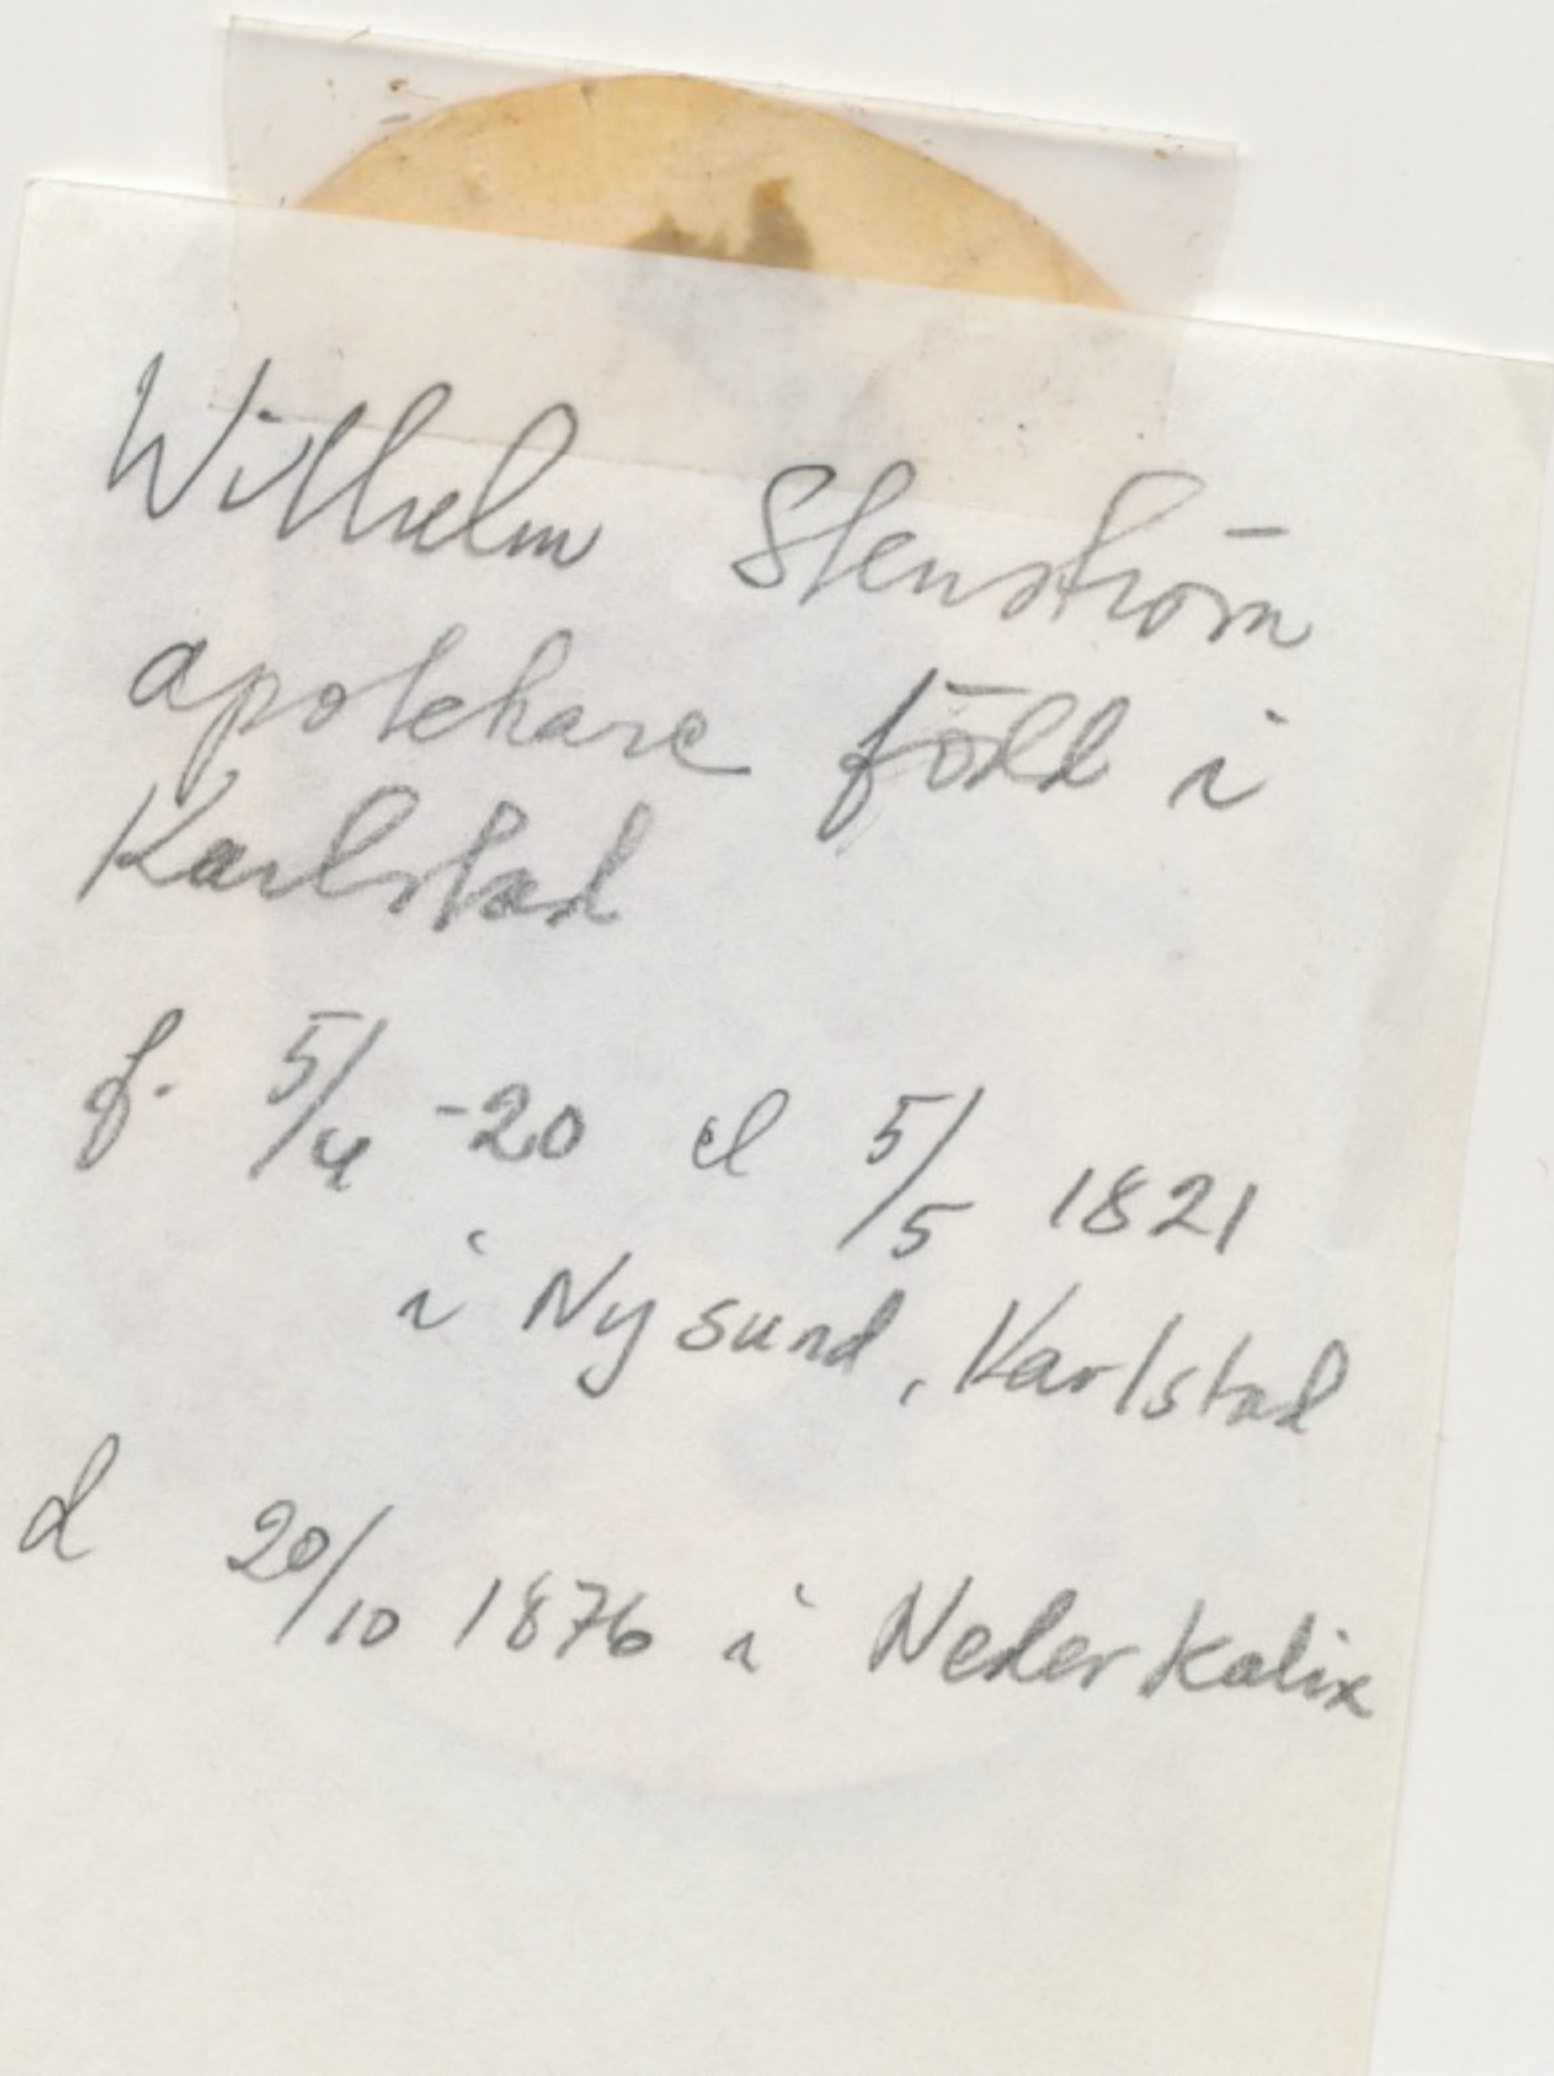 Wilhelm Stenström
apotekare född i
Karlstad
f. 5/4 -20 el 5/5 1821
i Nysund, Karlstad
d 20/10 1876 i Nederkalix